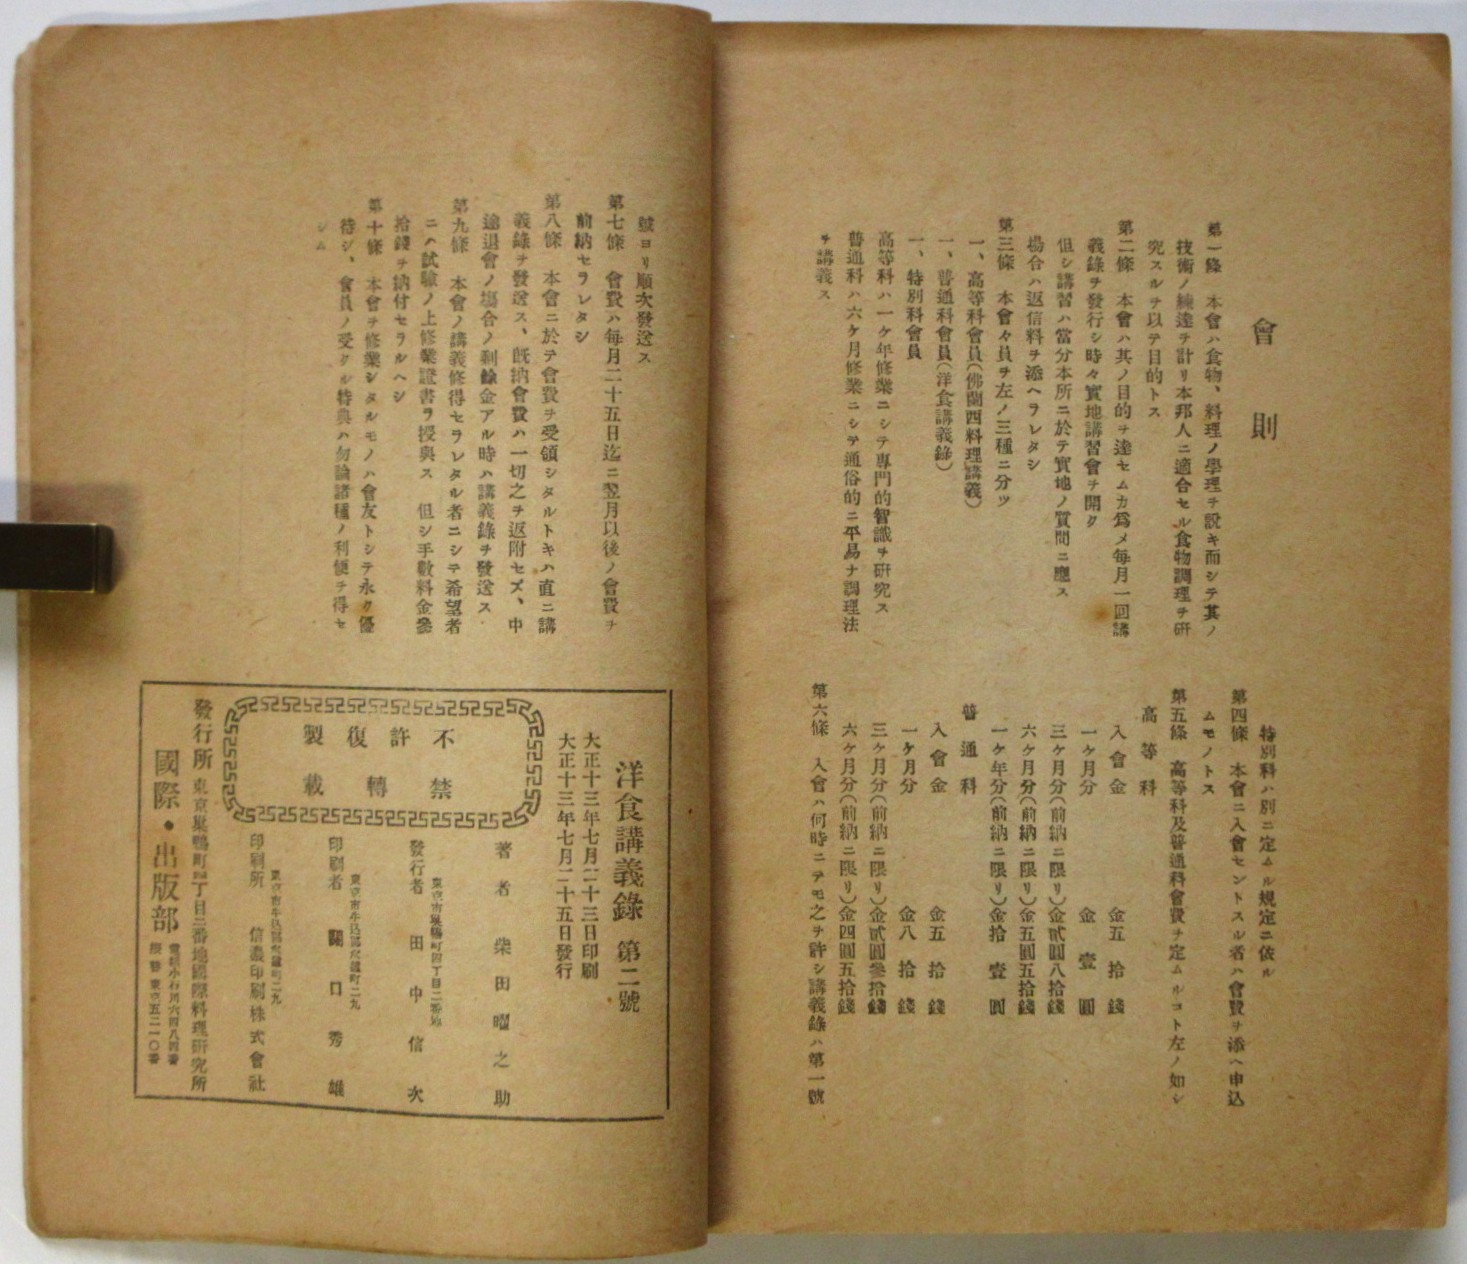 會則
第一條　本會ハ食物、料理ノ學理ヲ説キ而シテ其ノ
技術ノ練達ヲ計リ本邦人ニ適合セル食物調理ヲ研
究スルヲ以テ目的トス
第二條　本會ハ其ノ目的ヲ達セムカ爲メ毎月一回講
義錄ヲ發行シ時々實地講習會ヲ開ク
但シ講習ハ當分本所ニ於テ實地ノ質問ニ應ス
場合ハ返信料ヲ添ヘラレタシ
第三條　本會々員ヲ左ノ三種ニ分ツ
一、高等科會員(佛蘭西料理講義)
一、普通科會員(洋食講義錄)
一、特別科會員
高等科ハ一ケ年修業ニシテ專門的智識ヲ研究ス
普通科ハ六ケ月修業ニシテ通俗的ニ平易ナ調理法
ヲ講義ス
特別科ハ別ニ定ムル規定ニ依ル
第四條　本會ニ入會セントスル者ハ會費ヲ添ヘ申込
ムモノトス
第五條　高等科及普通科會費ヲ定ムルコト左ノ如シ
高等科
入會金　金五拾錢
一ケ月分　金壹圓
三ケ月分(前納ニ限リ)金貳圓八拾錢
六ケ月分(前納ニ限リ)金五圓五拾錢
一ケ年分(前納ニ限リ)金拾壹圓
普通科
入會金　金五拾錢
一ケ月分　金八拾錢
三ケ月分(前納ニ限リ)金貳圓參拾錢
六ケ月分(前納ニ限リ)金四圓五拾錢
第六條　入會ハ何時ニテモ之ヲ許シ講義錄ハ第一號
號ヨリ順次發送ス
第七條　會費ハ毎月二十五日迄ニ翌月以後ノ會費ヲ
前納セラレタシ
第八條　本會ニ於テ會費ヲ受領シタルトキハ直ニ講
義錄ヲ發送ス、既納會費ハ一切之ヲ返附セズ、中
途退會ノ場合ノ剩餘金アル時ハ講義錄ヲ發送ス
第九條　本會ノ講義修得セラレタル者ニシテ希望者
ニハ試驗ノ上修業證書ヲ授與ス　但シ手數料金參
拾錢ヲ納付セラルヘシ
第十條　本會ヲ修業シタルモノハ會友トシテ永ク優
待シ、會員ノ受クル特典ハ勿論諸種ノ利便ヲ得セ
シム
洋食講義錄　第二號
大正十三年七月二十三日印刷
大正十三年七月二十五日發行
不許復製
禁轉載
著者　柴田曜之助
東京市巣鴨町四丁目二番地
發行者　田中信次
東京市牛込區
印刷者　關口秀雄
東京市牛込區
印刷所　信濃印刷株式會社
發行所　東京巣鴨町四丁目二番地國際料理研究所
國際・出版部
電話小石川六四八四番
振替東京五二一〇番